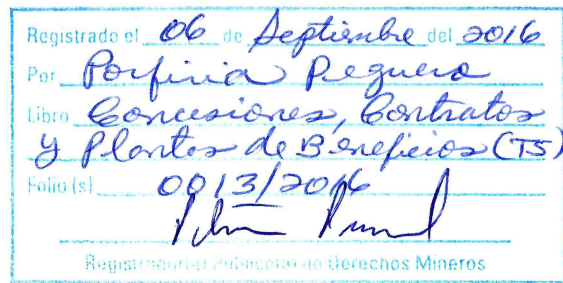 Registrado el 06 de Septiembre del 2016
Por Porfiria Peguero
Libro Concesiones, Contratos
y Plantas de Beneficios (T5)
Folio (s) 0013/2016
de Derechos Mineros